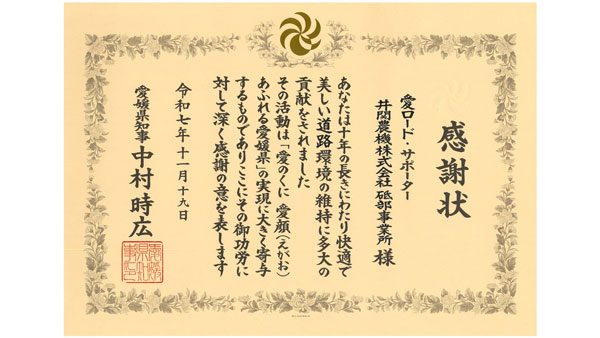 感謝状
愛ロード・サポーター
井関農機株式会社 砥部事業所 様
あなたは十年の長きにわたり快適で
美しい道路環境の維持に多大の
貢献をされました
その活動は「愛のくに 愛顔(えがお)
あふれる愛媛県」の実現に大きく寄与
するものでありここにその御功労に
対して深く感謝の意を表します
令和七年十一月十九日
愛媛県知事 中村時広
愛媛県知事印